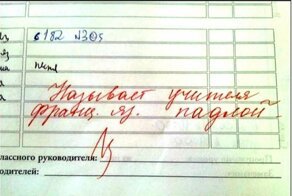 с 182 №305
пение
Называет учителя
франц. яз. падлой
лассного руководителя:
одителей: